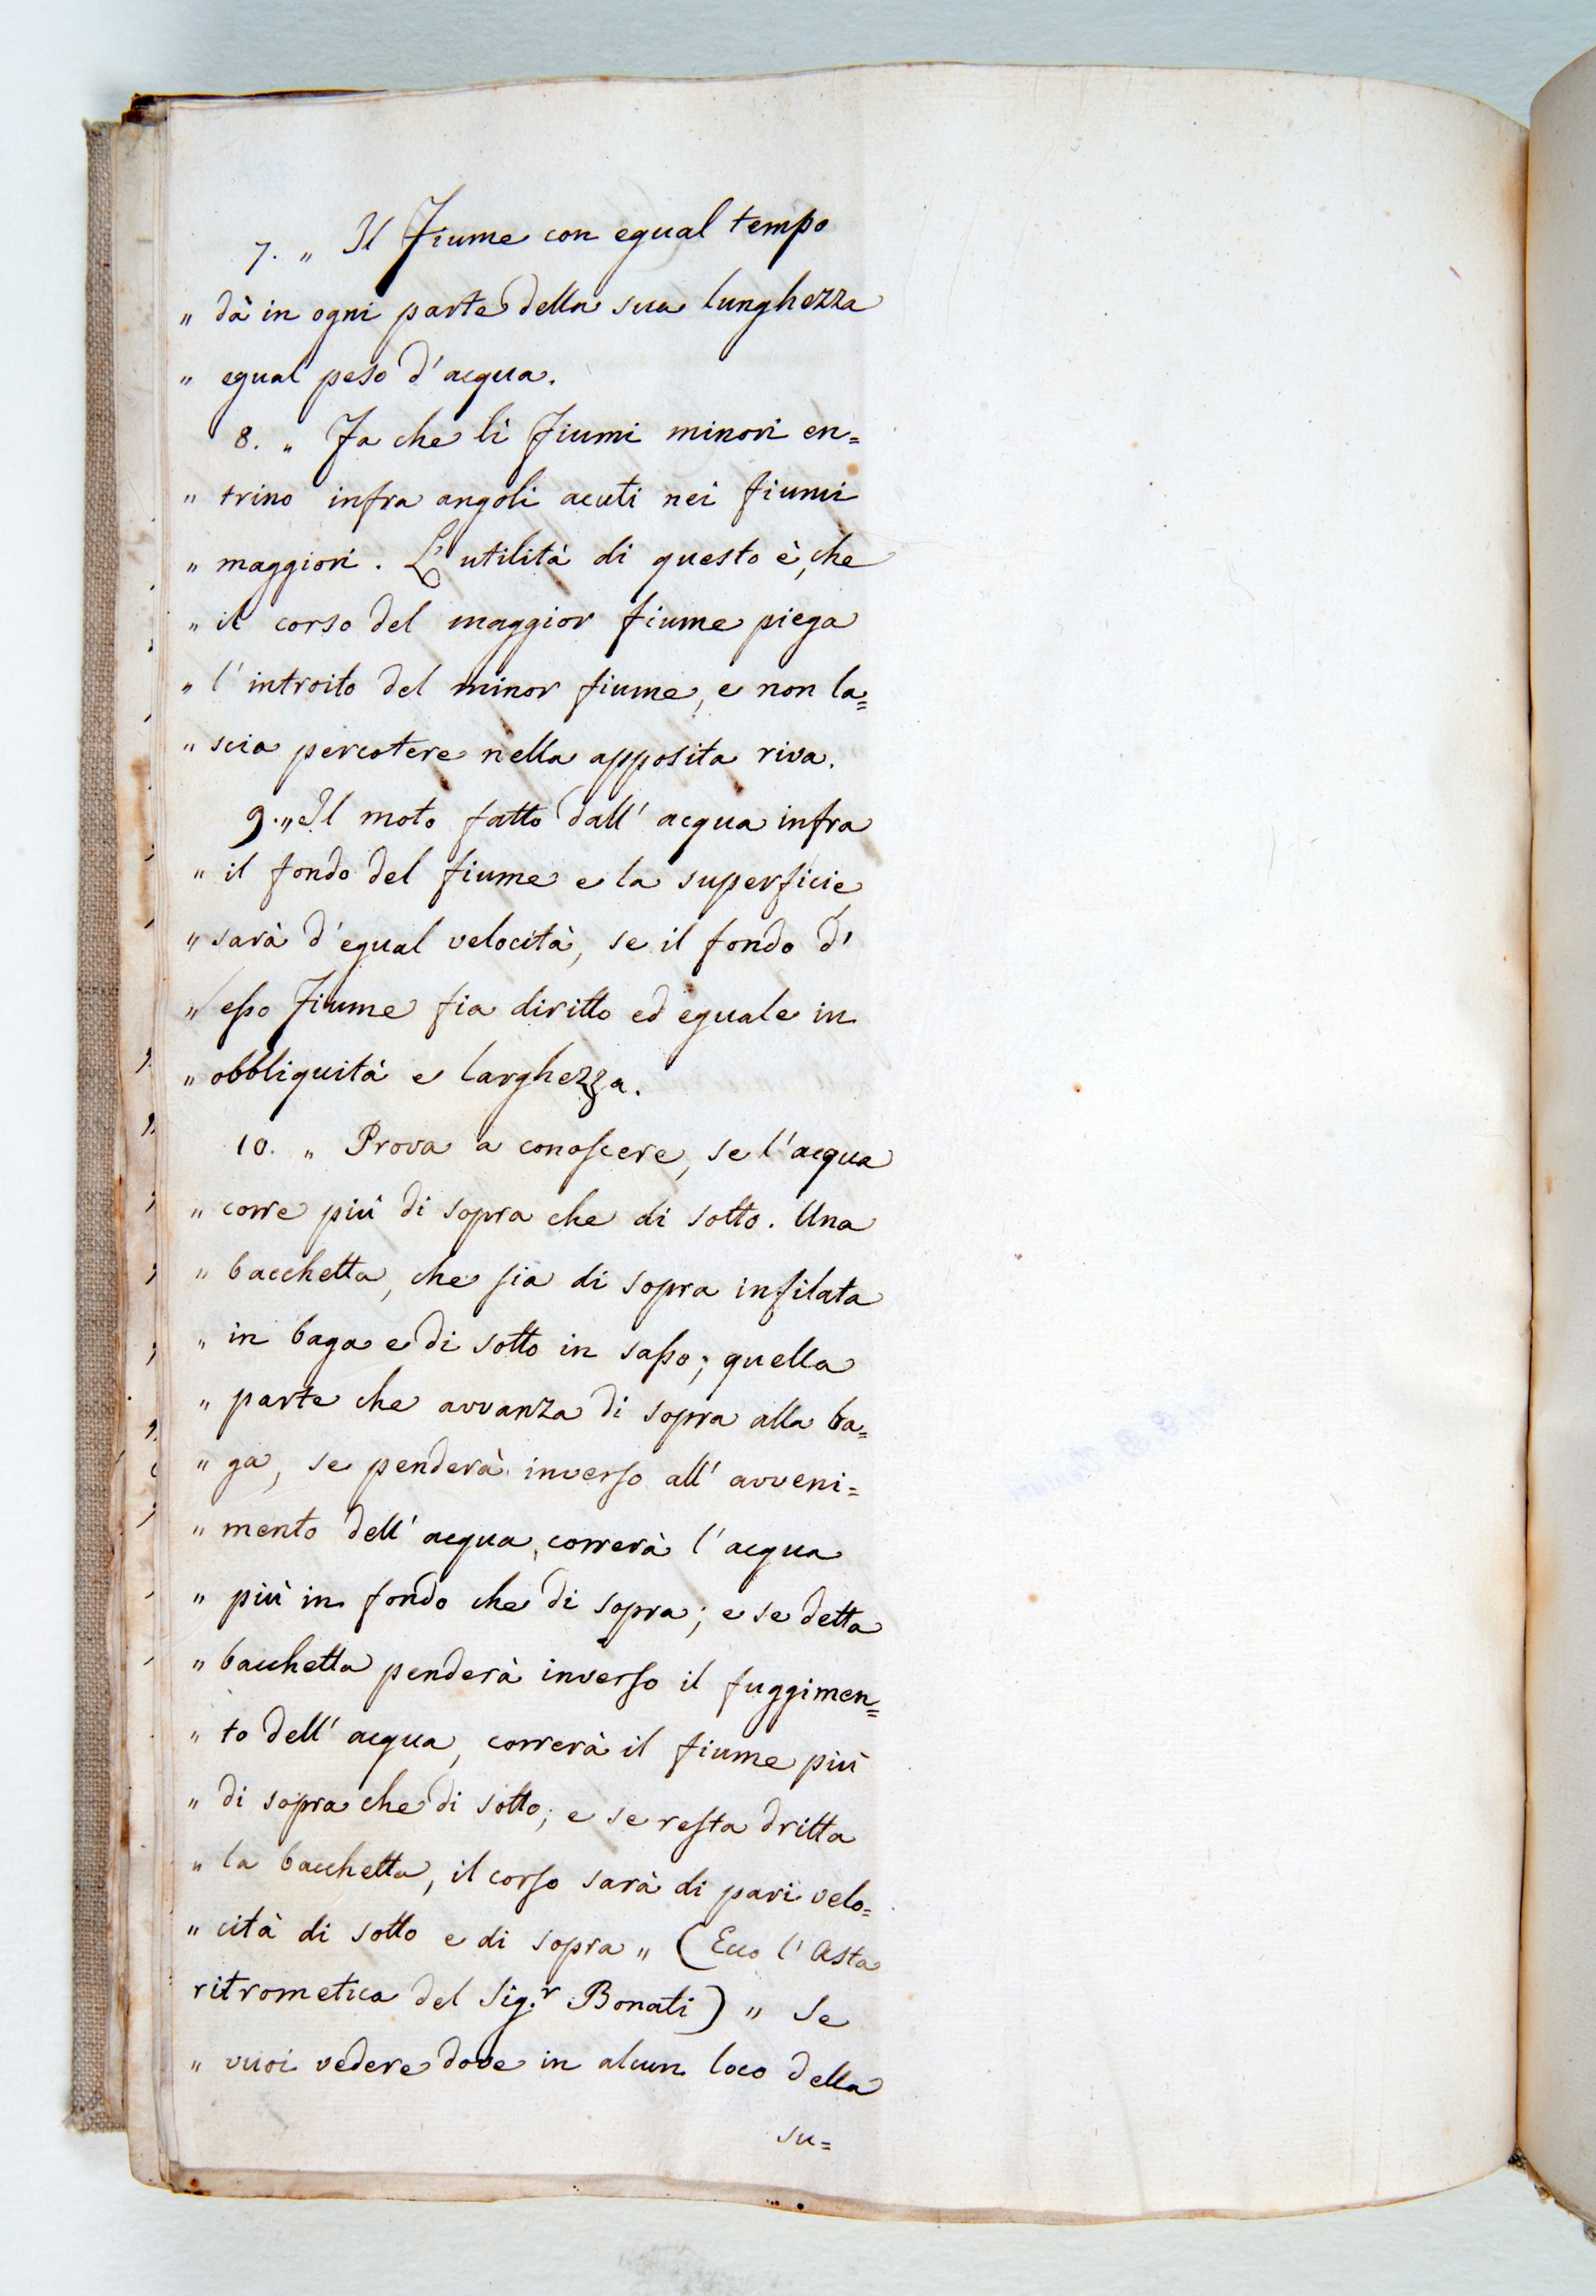 7. „ Il Fiume con egual tempo
„ dà in ogni parte della sua lunghezza
„ egual peso d'acqua.
8. „ Fa che li Fiumi minori en=
„ trino infra angoli acuti nei fiumi
„ maggiori. L'utilità di questo è, che
„ il corso del maggior fiume piega
„ l'introito del minor fiume, e non la=
„ scia percotere nella apposita riva.
9. „ Il moto fatto dall'acqua infra
„ il fondo del fiume e la superficie
„ sarà d'egual velocità, se il fondo d'
„ eſso Fiume fia diritto ed eguale in
„ obbliquità e larghezza.
10. „ Prova a conoſcere, se l'acqua
„ corre più di sopra che di sotto. Una
„ bacchetta, che sia di sopra infilata
„ in baga e di sotto in saſso; quella
„ parte che avvanza di sopra alla ba=
„ ga, se penderà inverſo all'avveni=
„ mento dell'acqua, correrà l'acqua
„ più in fondo che di sopra; e se detta
„ bacchetta penderà inverſo il fuggimen=
„ to dell'acqua, correrà il fiume più
„ di sopra che di sotto; e se reſta dritta
„ la bacchetta, il corſo sarà di pari velo=
„ cità di sotto e di sopra „ (Ecco l'Asta
ritrometica del Sig.r Bonati) „ Se
„ vuoi vedere dove in alcun loco della
su=